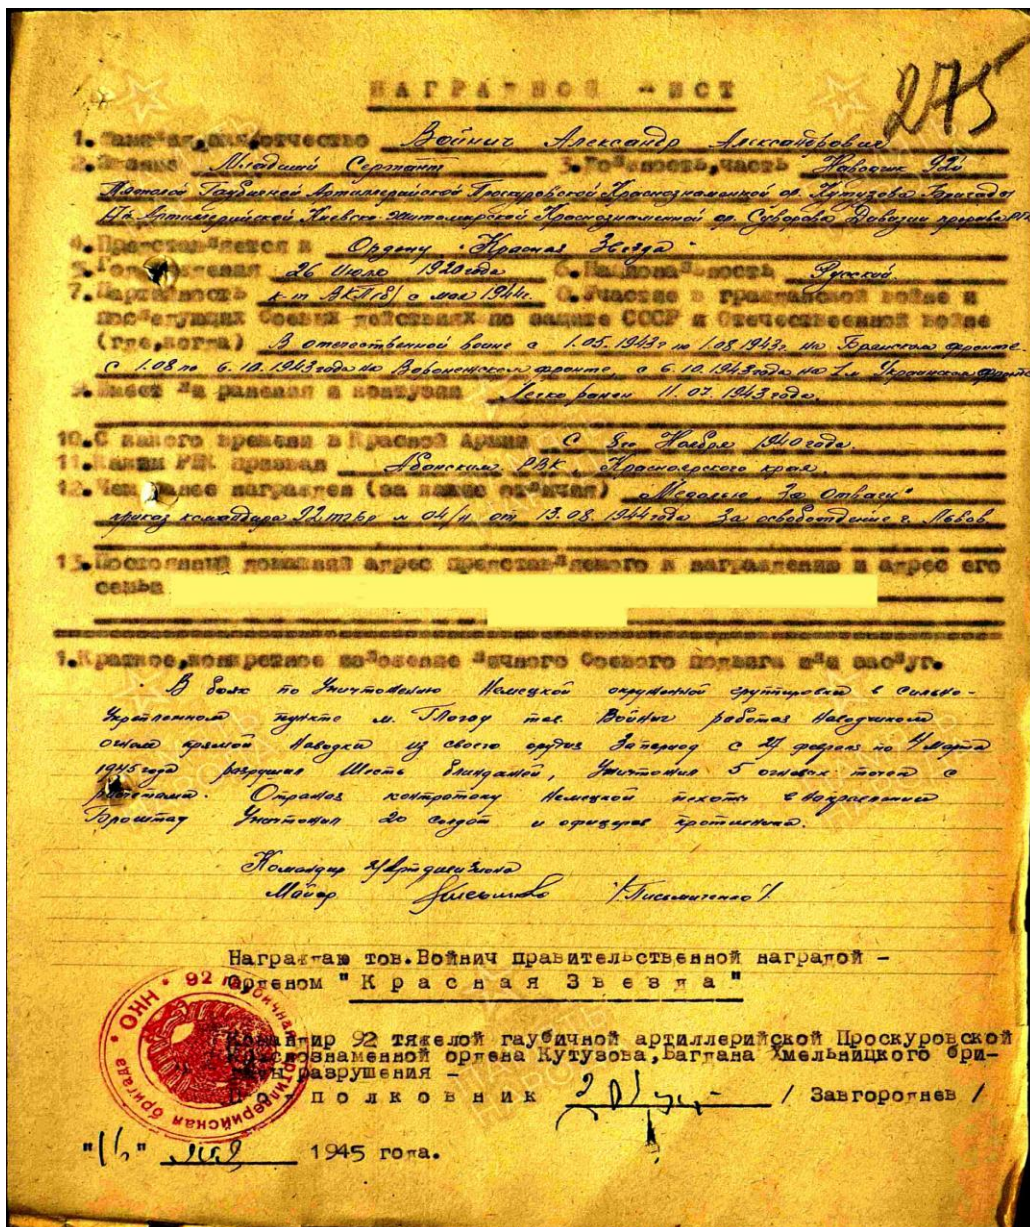 275
НАГРАДНОЙ ЛИСТ
1. Фамилия, имя, отчество Войнич Александр Александрович
2. Звание Младший Сержант 3. Должность, часть Наводчик 92й
Тяжелой Гаубичной Артиллерийской Проскуровской Краснознаменной ор. Кутузова Бригады
17й Артиллерийской Киевско-Житомирской Краснознаменной ор. Суворова Дивизии прорыва РГК
4. Представляется к Ордену "Красная Звезда"
5. Год рождения 26 Июля 1920 года 6. Национальность Русский
7. Партийность к-т ВКП/б/ с мая 1944г. 8. Участие в гражданской войне и
последующих боевых действиях по защите СССР и Отечественной войне
(где, когда) В отечественной воине с 1.05.1943г по 1.08.1943г. на Брянском фронте.
с 1.08 по 6.10.1943 года на Воронежском фронте, с 6.10.1943 года на 1м Украинском фронте
9. Имеет ли ранения и контузии Легко ранен 11.07.1943 года.
10. С какого времени в Красной Армии С Ноября 1940 года.
11. Каким РВК призван Абанским РВК, Красноярского края.
12. Чем ранее награжден (за какие отличия) Медалью "За Отвагу"
приказ командира 92 тгбр № 04/н от 13.08.1944 года За освобождение г. Львов.
13. Постоянный домашний адрес представляемого к награждению и адрес его
семьи
1. Краткое, конкретное изложение личного боевого подвига или заслуг.
В боях по Уничтожению Немецкой окруженной группировки в сильно-
Укрепленном пункте м. Глогау тов. Войнич работая Наводчиком
огнем прямой Наводки из своего орудия За период с 27 февраля по 4 Марта
1945 года разрушил Шесть блиндажей, Уничтожил 5 огневых точек с
расчетами. Отражая контратаку Немецкой пехоты в направлении
Броштау Уничтожил 20 солдат и офицеров противника.
Командир Артдивизиона
Майор /Письмиченко/
Награждаю тов. Войнич правительственной наградой -
Орденом "Красная Звезда"
Командир 92 тяжелой гаубичной артиллерийской Проскуровской
Краснознаменной ордена Кутузова, Багдана Хмельницкого бри-
гады разрушения -
Подполковник / Завгороднев /
"16" мая 1945 года.
ОНН • 92 гаубичная артиллерийская бригада
ПАМЯТЬ НАРОДА